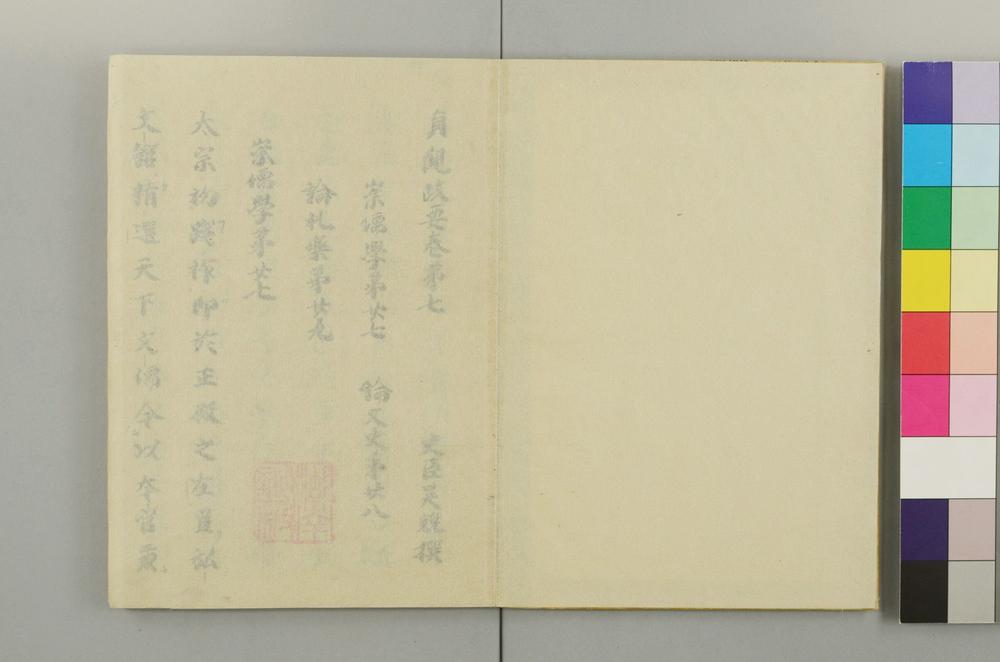 貞觀政要卷第七　史臣吳兢撰
崇儒學第廿七　論文史第廿八
論礼樂第廿九
崇儒學第廿七
太宗初踐祚即於正殿之左置弘
文館精選天下文儒令以本官兼